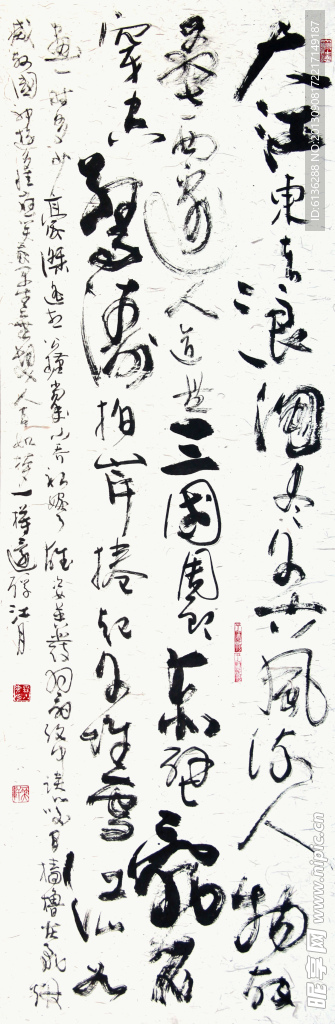 大江東去浪淘尽千古風流人物故
壘西邊人道是三國周郎赤壁亂石
穿空驚濤拍岸捲起千堆雪江山如
畫一時多少豪傑遙想公瑾當年小喬初嫁了雄姿英發羽扇綸巾談笑間檣櫓灰飛煙
滅故國神遊多情應笑我早生華髮人生如夢一樽還酹江月
ID:6136288 NO:20130308172217149187
昵享网 www.nipic.cn